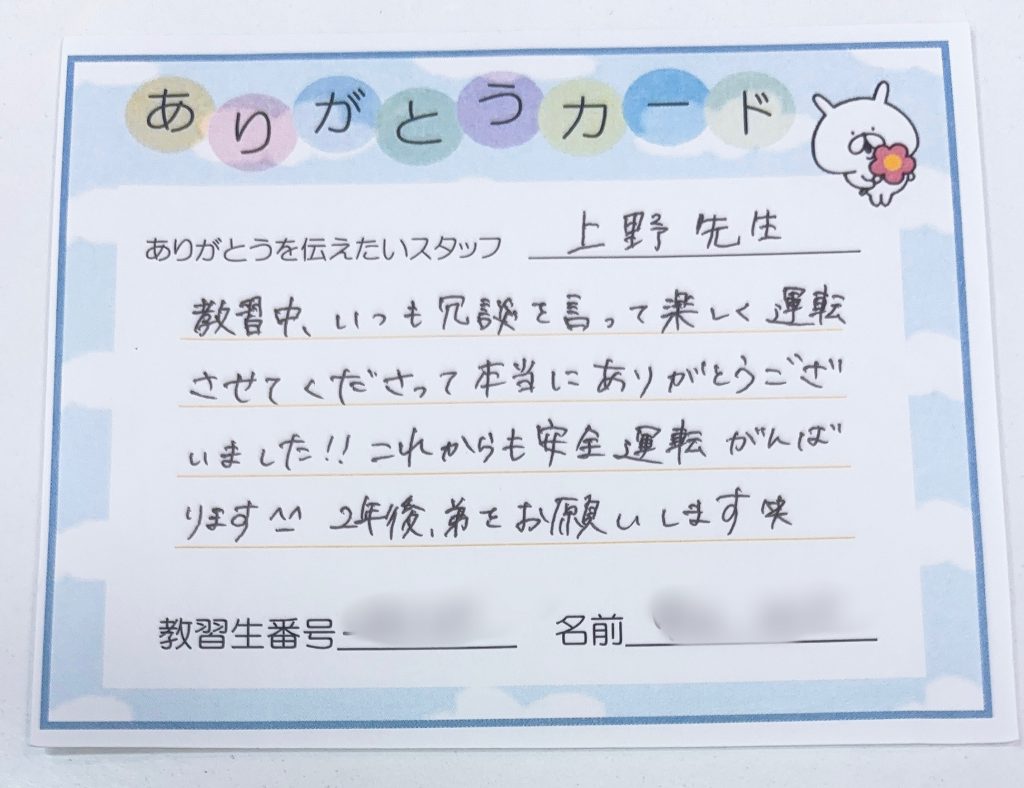 ありがとうカード
ありがとうを伝えたいスタッフ 上野先生
教習中、いつも冗談を言って楽しく運転
させてくださって本当にありがとうござ
いました!! これからも安全運転がんば
ります^_^ 2年後、弟をお願いします笑
教習生番号 名前